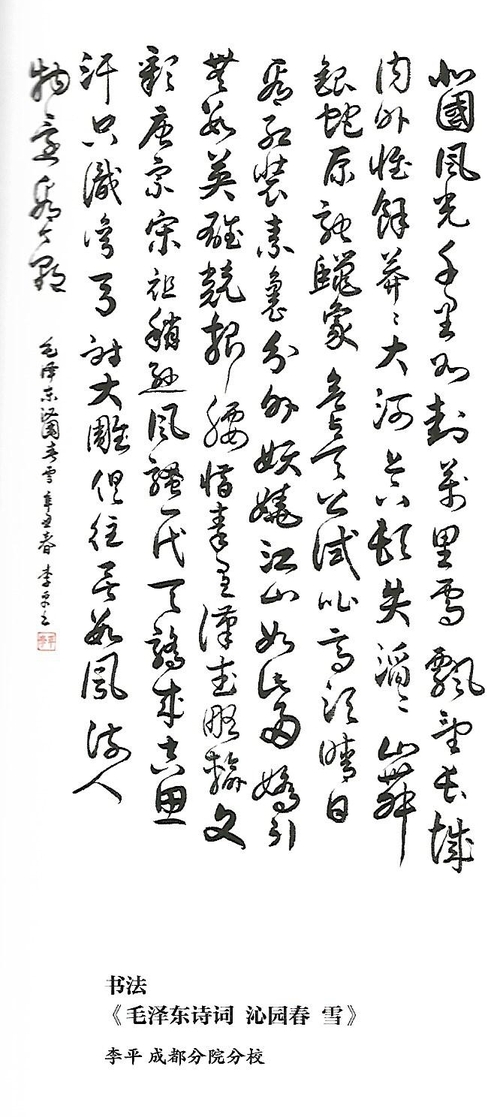 北國風光千里冰封萬里雪飄望長城
內外惟餘莽〻大河上下頓失滔〻山舞
銀蛇原馳蠟象欲與天公試比高須晴日
看紅裝素裹分外妖嬈江山如此多嬌引
無數英雄競折腰惜秦皇漢武略輸文
彩唐宗宋祖稍遜風騷一代天驕成吉思
汗只識彎弓射大雕俱往矣數風流人
物還看今朝
毛澤東沁園春雪辛丑春李平
书法
《毛泽东诗词 沁园春 雪》
李平 成都分院分校